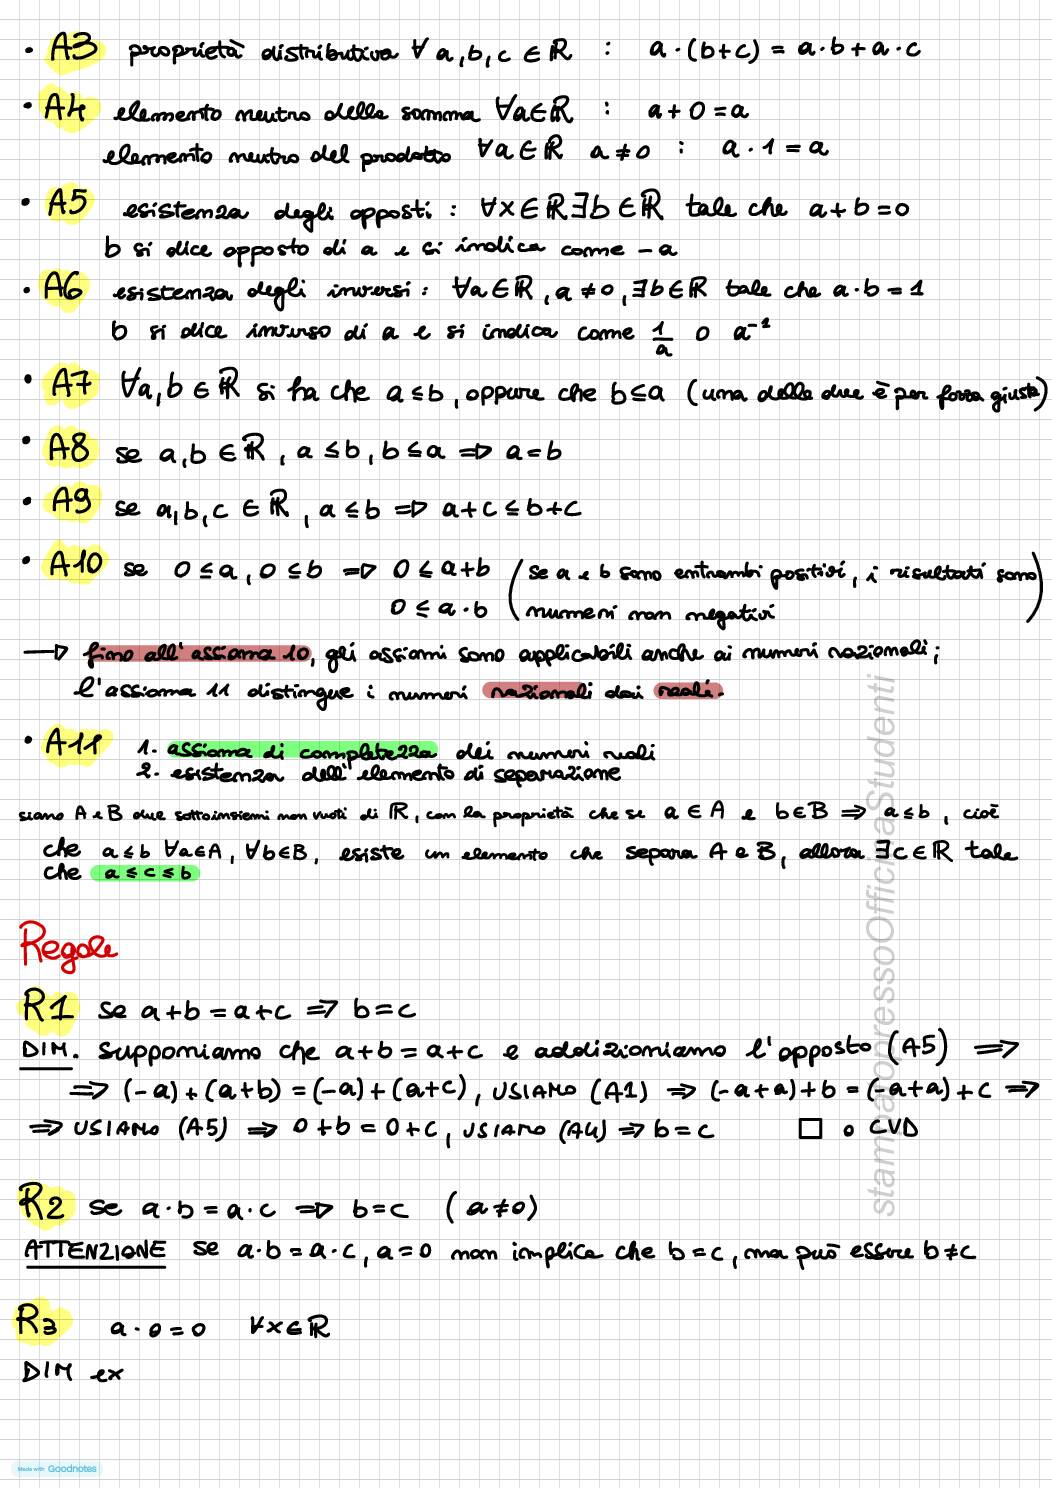 • A3 proprietà distributiva ∀ a,b,c ∈ ℝ : a·(b+c) = a·b+a·c
• A4 elemento neutro della somma ∀a∈ℝ : a+0=a
elemento neutro del prodotto ∀a∈ℝ a≠0 : a·1=a
• A5 esistenza degli opposti : ∀x∈ℝ ∃b∈ℝ tale che a+b=0
b si dice opposto di a e si indica come -a
• A6 esistenza degli inversi : ∀a∈ℝ, a≠0, ∃b∈ℝ tale che a·b=1
b si dice inverso di a e si indica come 1/a o a⁻¹
• A7 ∀a,b ∈ ℝ si ha che a≤b, oppure che b≤a (una delle due è per forza giusta)
• A8 se a,b ∈ ℝ, a≤b, b≤a ⇒ a=b
• A9 se a,b,c ∈ ℝ, a≤b ⇒ a+c≤b+c
• A10 se 0≤a, 0≤b ⇒ 0≤a+b (se a e b sono entrambi positivi, i risultati sono
0≤a·b numeri non negativi)
→ fino all'assioma 10, gli assiomi sono applicabili anche ai numeri razionali;
l'assioma 11 distingue i numeri razionali dai reali.
• A11 1. assioma di completezza dei numeri reali
2. esistenza dell'elemento di separazione
siano A e B due sottoinsiemi non vuoti di ℝ, con la proprietà che se a∈A e b∈B ⇒ a≤b, cioè
che a≤b ∀a∈A, ∀b∈B, esiste un elemento che separa A e B, allora ∃c∈ℝ tale
che a≤c≤b
Regole
R1 se a+b=a+c ⇒ b=c
DIM. Supponiamo che a+b=a+c e addizioniamo l'opposto (A5) ⇒
⇒ (-a)+(a+b)=(-a)+(a+c), USIAMO (A1) ⇒ (-a+a)+b=(-a+a)+c ⇒
⇒ USIAMO (A5) ⇒ 0+b=0+c, USIAMO (A4) ⇒ b=c □ o CVD
R2 se a·b=a·c ⇒ b=c (a≠0)
ATTENZIONE se a·b=a·c, a=0 non implica che b=c, ma può essere b≠c
R3 a·0=0 ∀x∈ℝ
DIM ex
stampato presso Officina Studenti
Made with Goodnotes